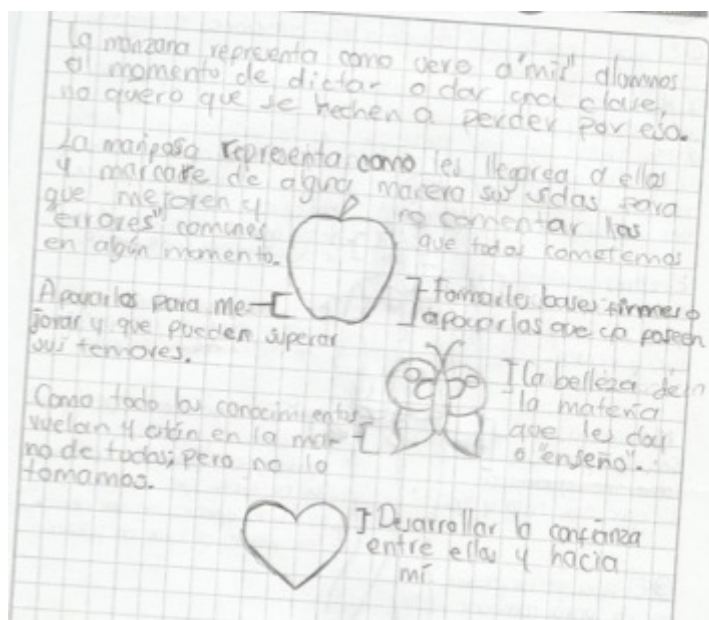 La manzana representa como vere a "mis" alumnos
al momento de dictar o dar una clase,
no quero que se hechen a perder por eso.
La mariposa representa como les llegarea a ellos
y marcare de alguna manera sus vidas para
que mejoren y no comentar los
"errores" comunes que todos cometemos
en algún momento.
Apoyarlos para me-
jorar y que pueden superar
sus temores.
Formarles bases firmes o
apoyarlas que ya poseen
La belleza de
la materia
que les doy
o "enseño".
Como todo los conocimientos
vuelan y están en la ma-
no de todos; pero no lo
tomamos.
Desarrollar la confianza
entre ellos y hacia
mí